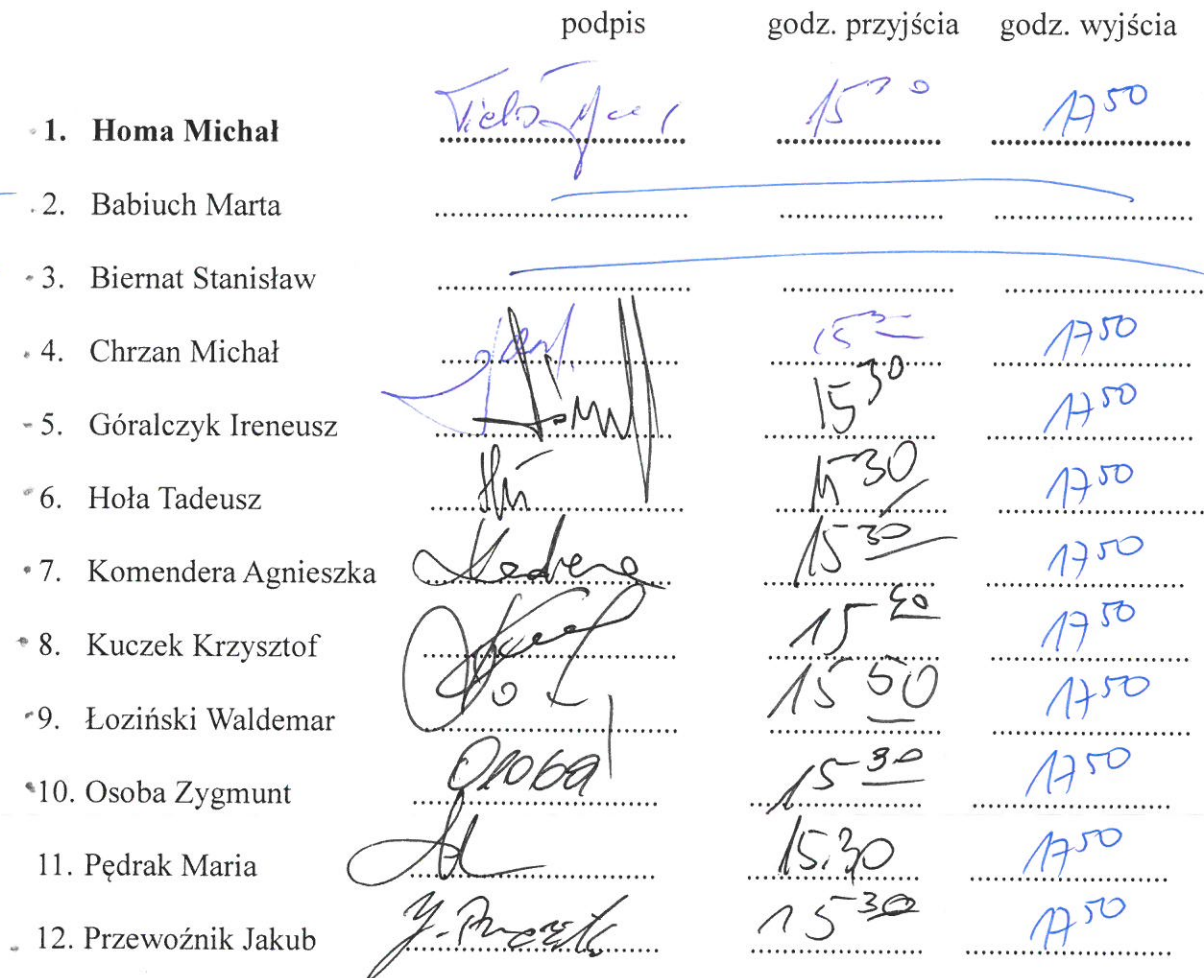 podpis godz. przyjścia godz. wyjścia
1. Homa Michał 15³⁰ 17⁵⁰
2. Babiuch Marta
3. Biernat Stanisław
4. Chrzan Michał 17⁵⁰
5. Góralczyk Ireneusz 15³⁰ 17⁵⁰
6. Hoła Tadeusz 15³⁰ 17⁵⁰
7. Komendera Agnieszka 15³⁰ 17⁵⁰
8. Kuczek Krzysztof 17⁵⁰
9. Łoziński Waldemar 17⁵⁰
10. Osoba Zygmunt Osoba 15³⁰ 17⁵⁰
11. Pędrak Maria 15.30 17⁵⁰
12. Przewoźnik Jakub 15³⁰ 17⁵⁰